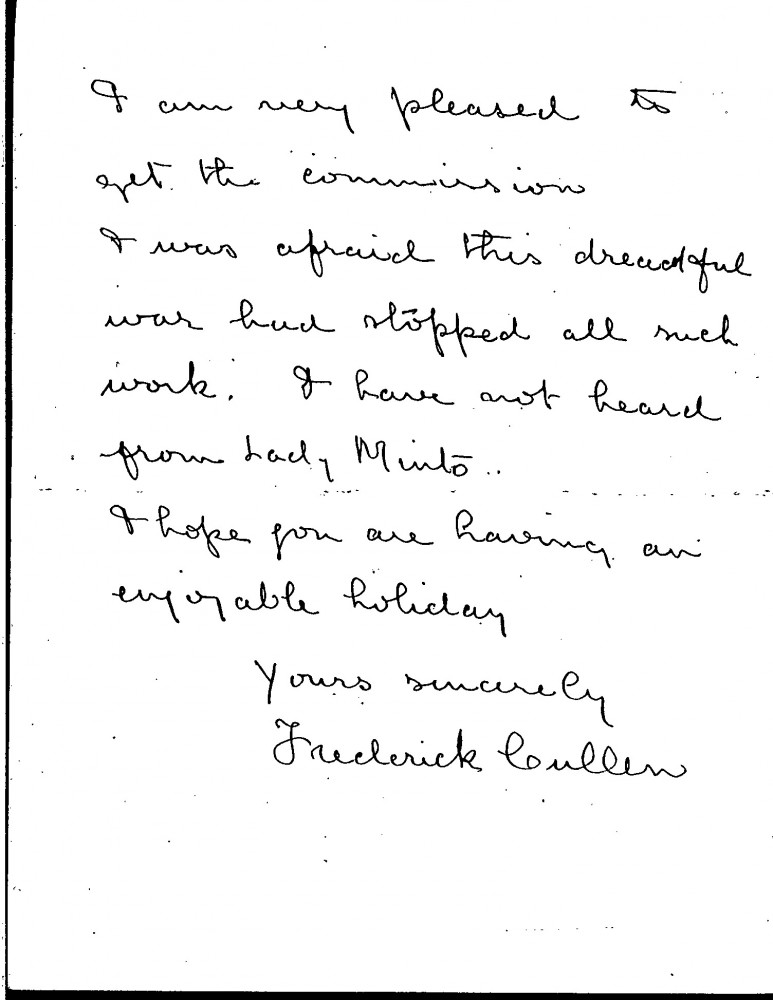 I am very pleased to
get the commission
I was afraid this dreadful
war had stopped all such
work. I have not heard
from Lady Minto..
I hope you are having an
enjoyable holiday
Yours sincerely
Frederick Cullen